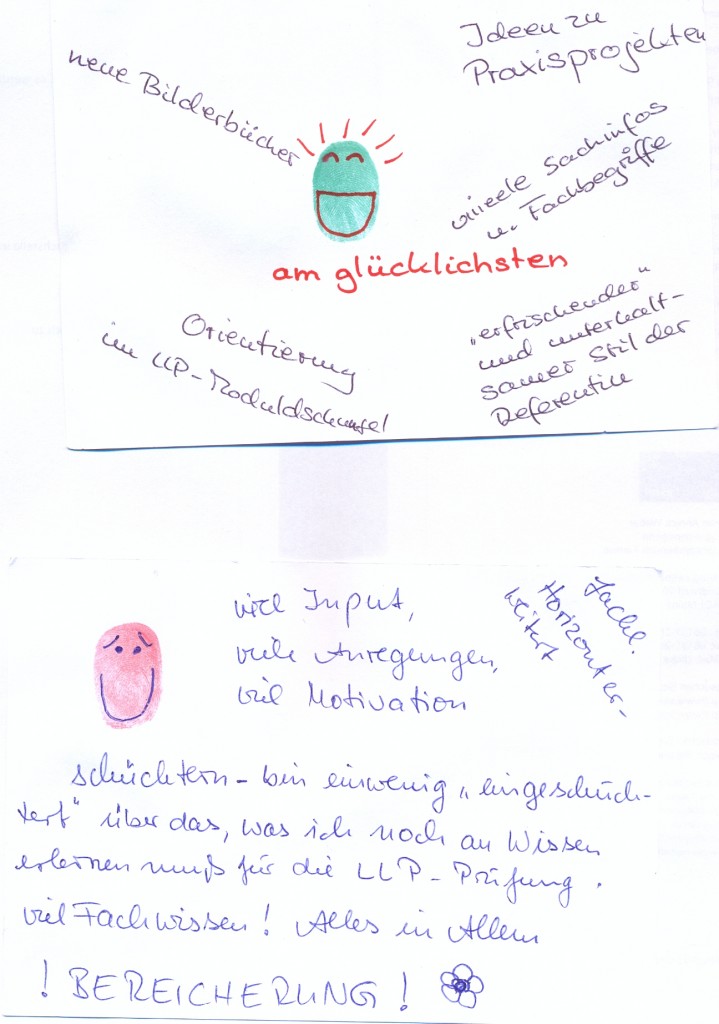 neue Bilderbücher
Ideen zu
Praxisprojekten
viiieele Sachinfos
u. Fachbegriffe
am glücklichsten
Orientierung
im LLP-Moduldschungel
„erfrischender"
und unterhalt-
samer Stil der
Referentin
viel Input,
viele Anregungen,
viel Motivation
Fachl.
Horizonter-
weitert
schüchtern - bin einwenig „eingeschüch-
tert" über das, was ich noch an Wissen
erlernen muß für die LLP-Prüfung.
viel Fachwissen! Alles in Allem
! BEREICHERUNG !